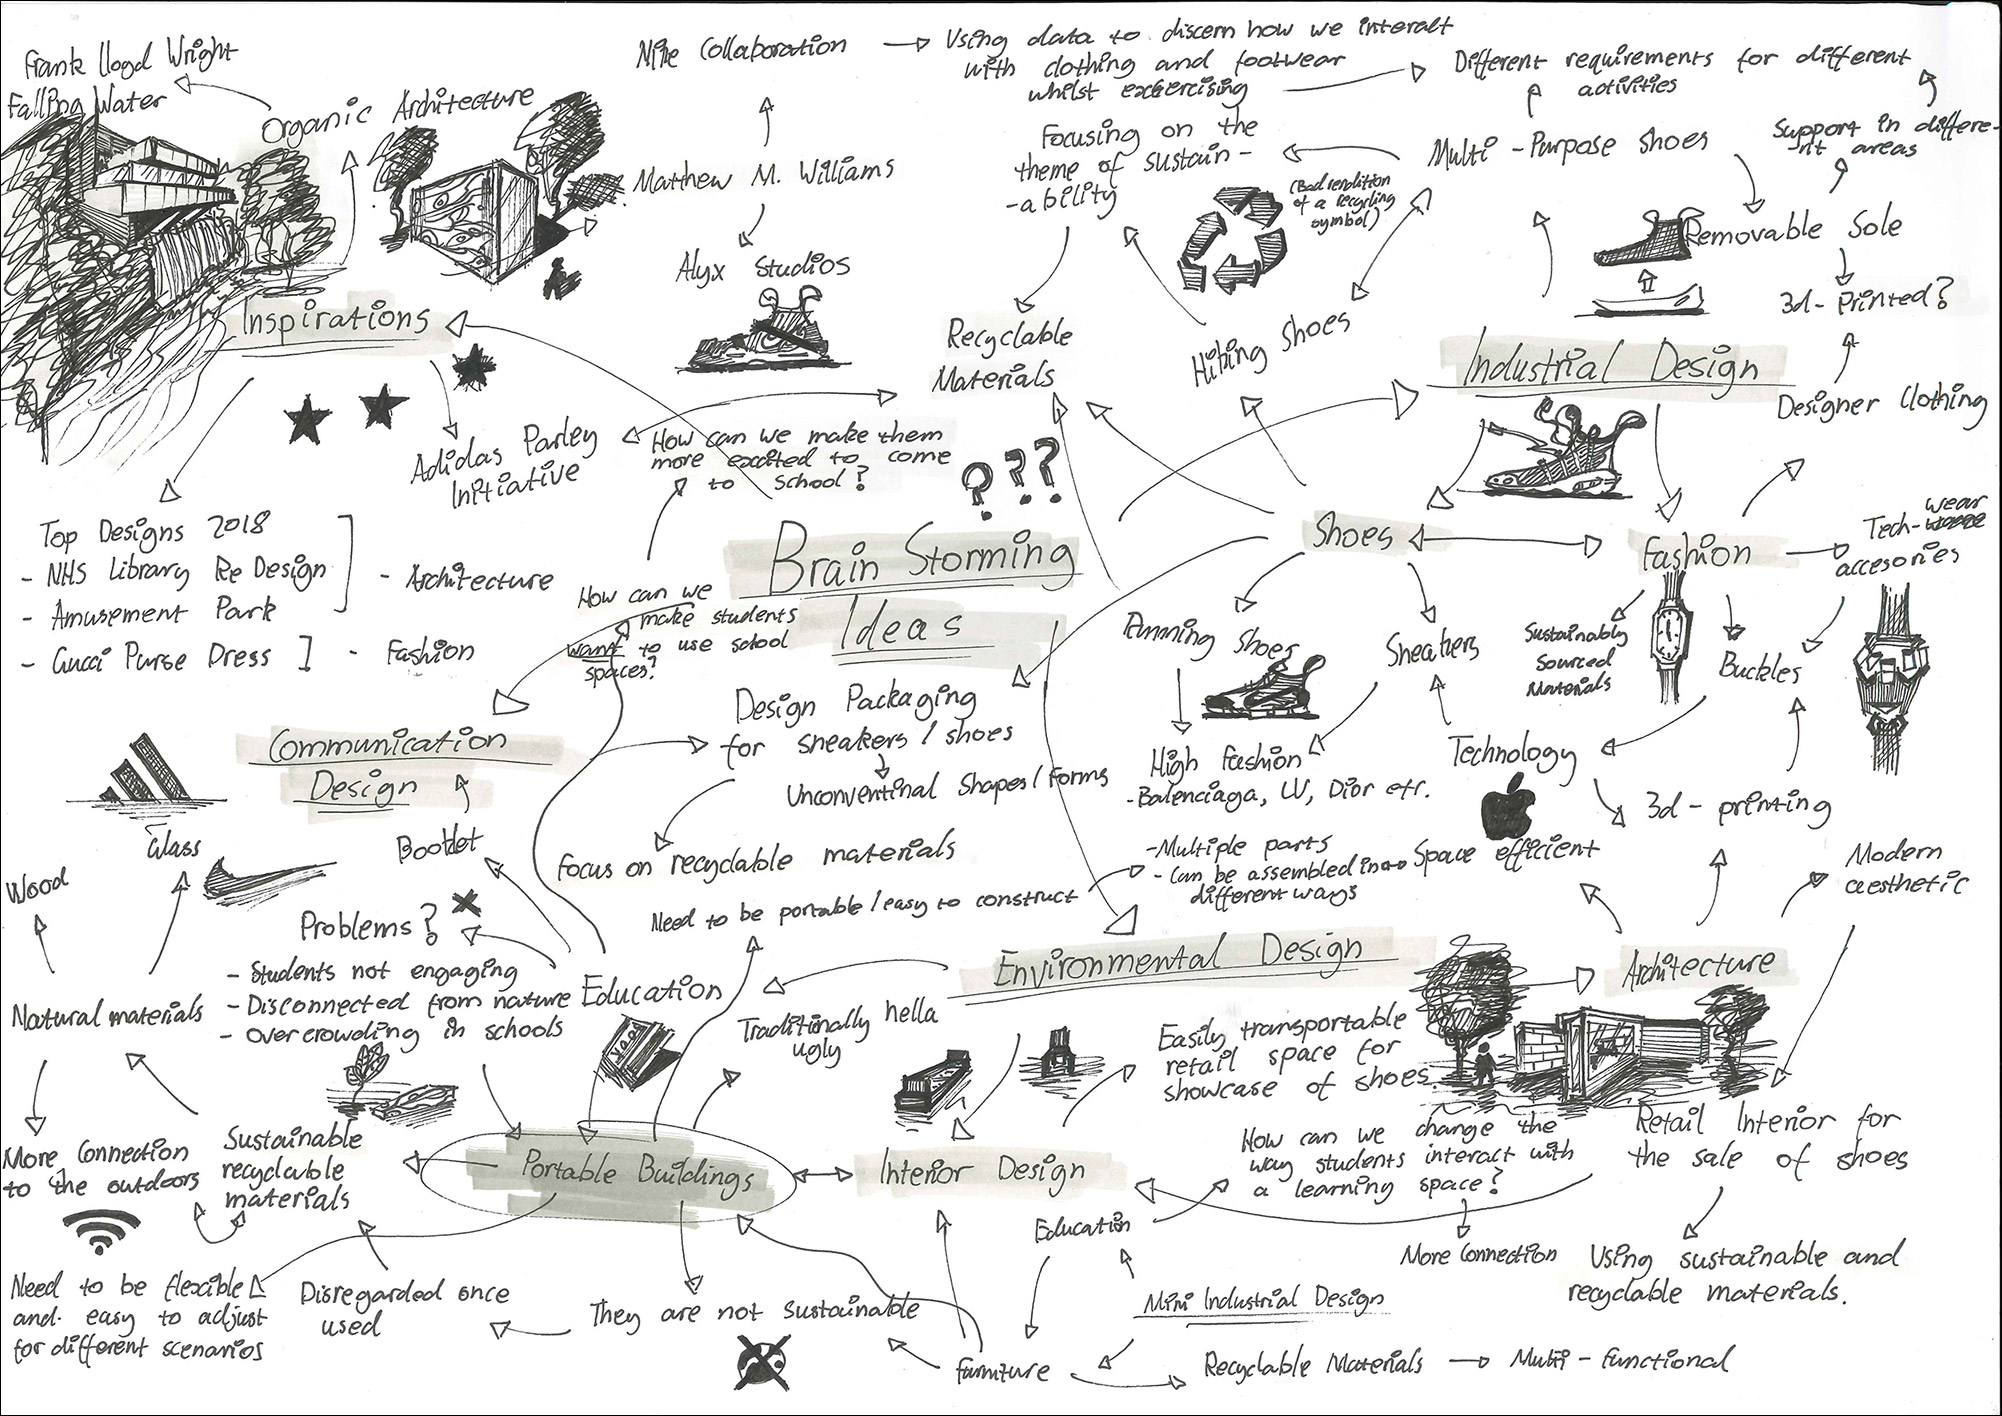 Frank Lloyd Wright
Falling Water
Organic Architecture
Inspirations
Nike Collaboration
Using data to discern how we interact
with clothing and footwear
whilst excercising
Different requirements for different
activities
Matthew M. Williams
Alyx Studios
Focusing on the
theme of sustain-
-ability
(Bad rendition
of a recycling
symbol)
Multi-Purpose shoes
Support in differe-
nt areas
Removable Sole
3d-Printed?
Recyclable
Materials
Hiking Shoes
Industrial Design
Designer Clothing
Adidas Parley
Initiative
How can we make them
more excited to come
to school?
???
Top Designs 2018
- NHS Library Re Design
- Amusement Park
- Architecture
- Gucci Purse Dress
- Fashion
Brain Storming
Ideas
How can we
make students
want to use school
spaces?
Shoes
Fashion
Tech-wear
accesories
Running Shoes
Sneakers
Sustainably
Sourced
Materials
Buckles
Communication
Design
Design Packaging
for sneakers / shoes
Unconventinal Shapes/forms
High Fashion
-Balenciaga, LV, Dior etc.
Technology
3d-printing
Glass
Wood
Booklet
Focus on recyclable materials
Need to be portable/easy to construct
-Multiple parts
- Can be assembled in
different ways
Space efficient
Modern
aesthetic
Problems?
- Students not engaging
- Disconnected from nature
- Overcrowding in schools
Education
Environmental Design
Architecture
Natural materials
Traditinally hella
ugly
Easily transportable
retail space for
showcase of shoes.
BOOK
More Connection
to the outdoors
Sustainable
recyclable
materials
Portable Buildings
Interior Design
How can we change the
way students interact with
a learning space?
Retail Interior for
the sale of shoes
Education
More Connection
Using sustainable and
recyclable materials.
Need to be flexible
and easy to adjust
for different scenarios
Disregarded once
used
They are not sustainable
Mini Industrial Design
Furniture
Recyclable Materials
Multi-functional